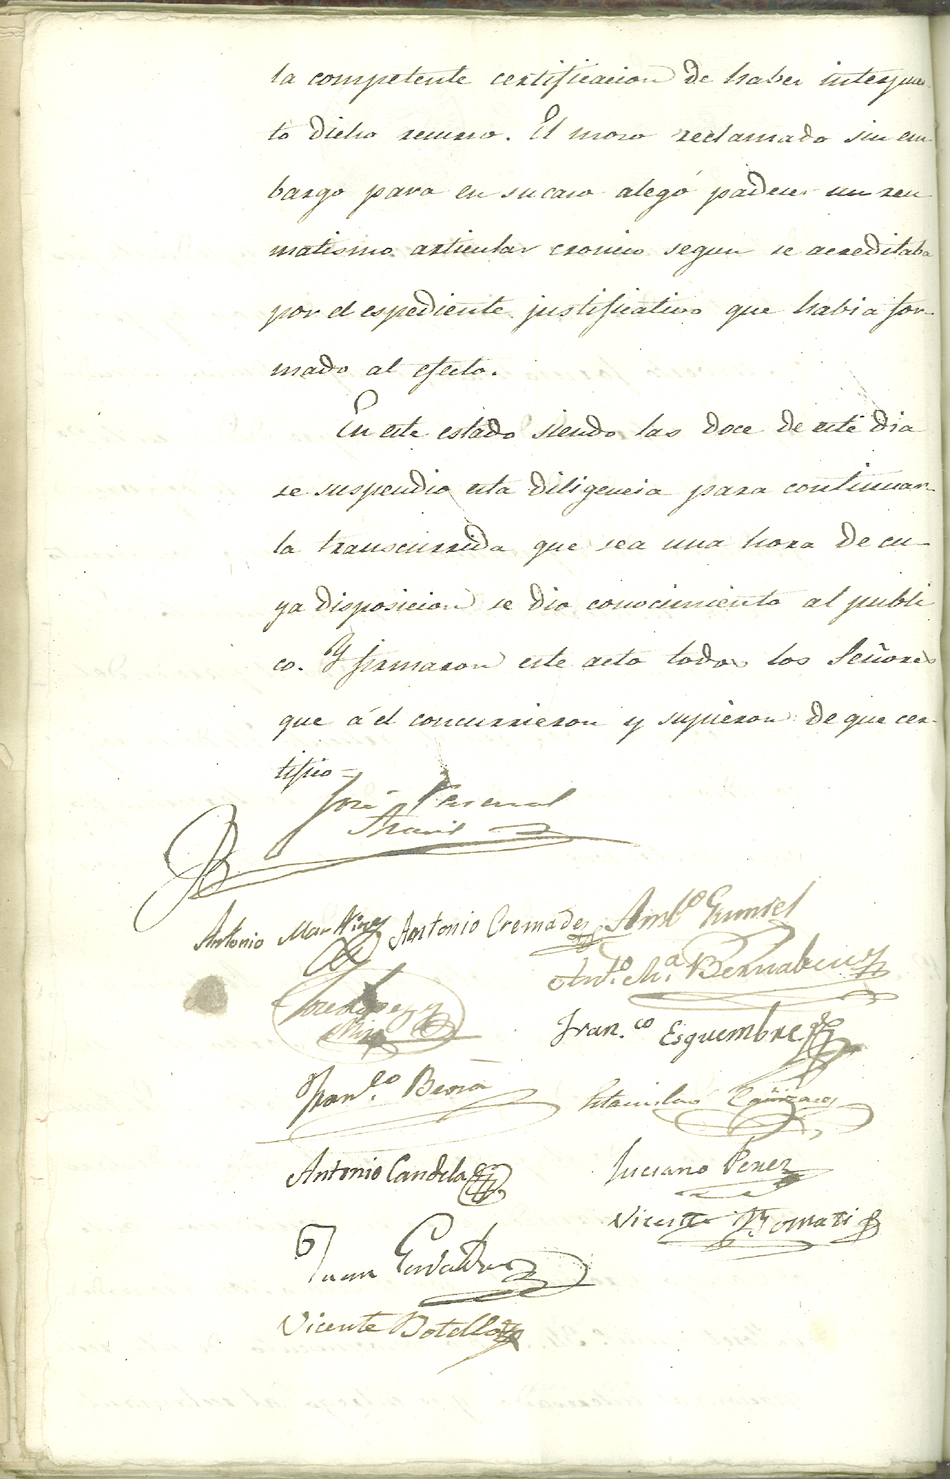 la competente certificacion de haber interpues-
to dicho recurso. El mozo reclamado sin em-
bargo para en su caso alegó padecer un reu-
matismo articular cronico segun se acreditaba
por el espediente justificativo que habia for-
mado al efecto.
En este estado siendo las doce de este dia
se suspendio esta diligencia para continuar-
la transcurrida que sea una hora de cu-
ya disposicion se dio conocimiento al publi
co. Y firmaron este acto todos los Señores
que á el concurrieron y supieron de que cer-
tifico=
José Pascual
Antonio Martinez Antonio Cremades Amb.º Gumiel
Ant.º M.ª Bernabeu
Fran.co Esquembre
Fran.co Berna
Estanislao
Antonio Candela
Luciano Perez
Vicente
Juan
Vicente Botella